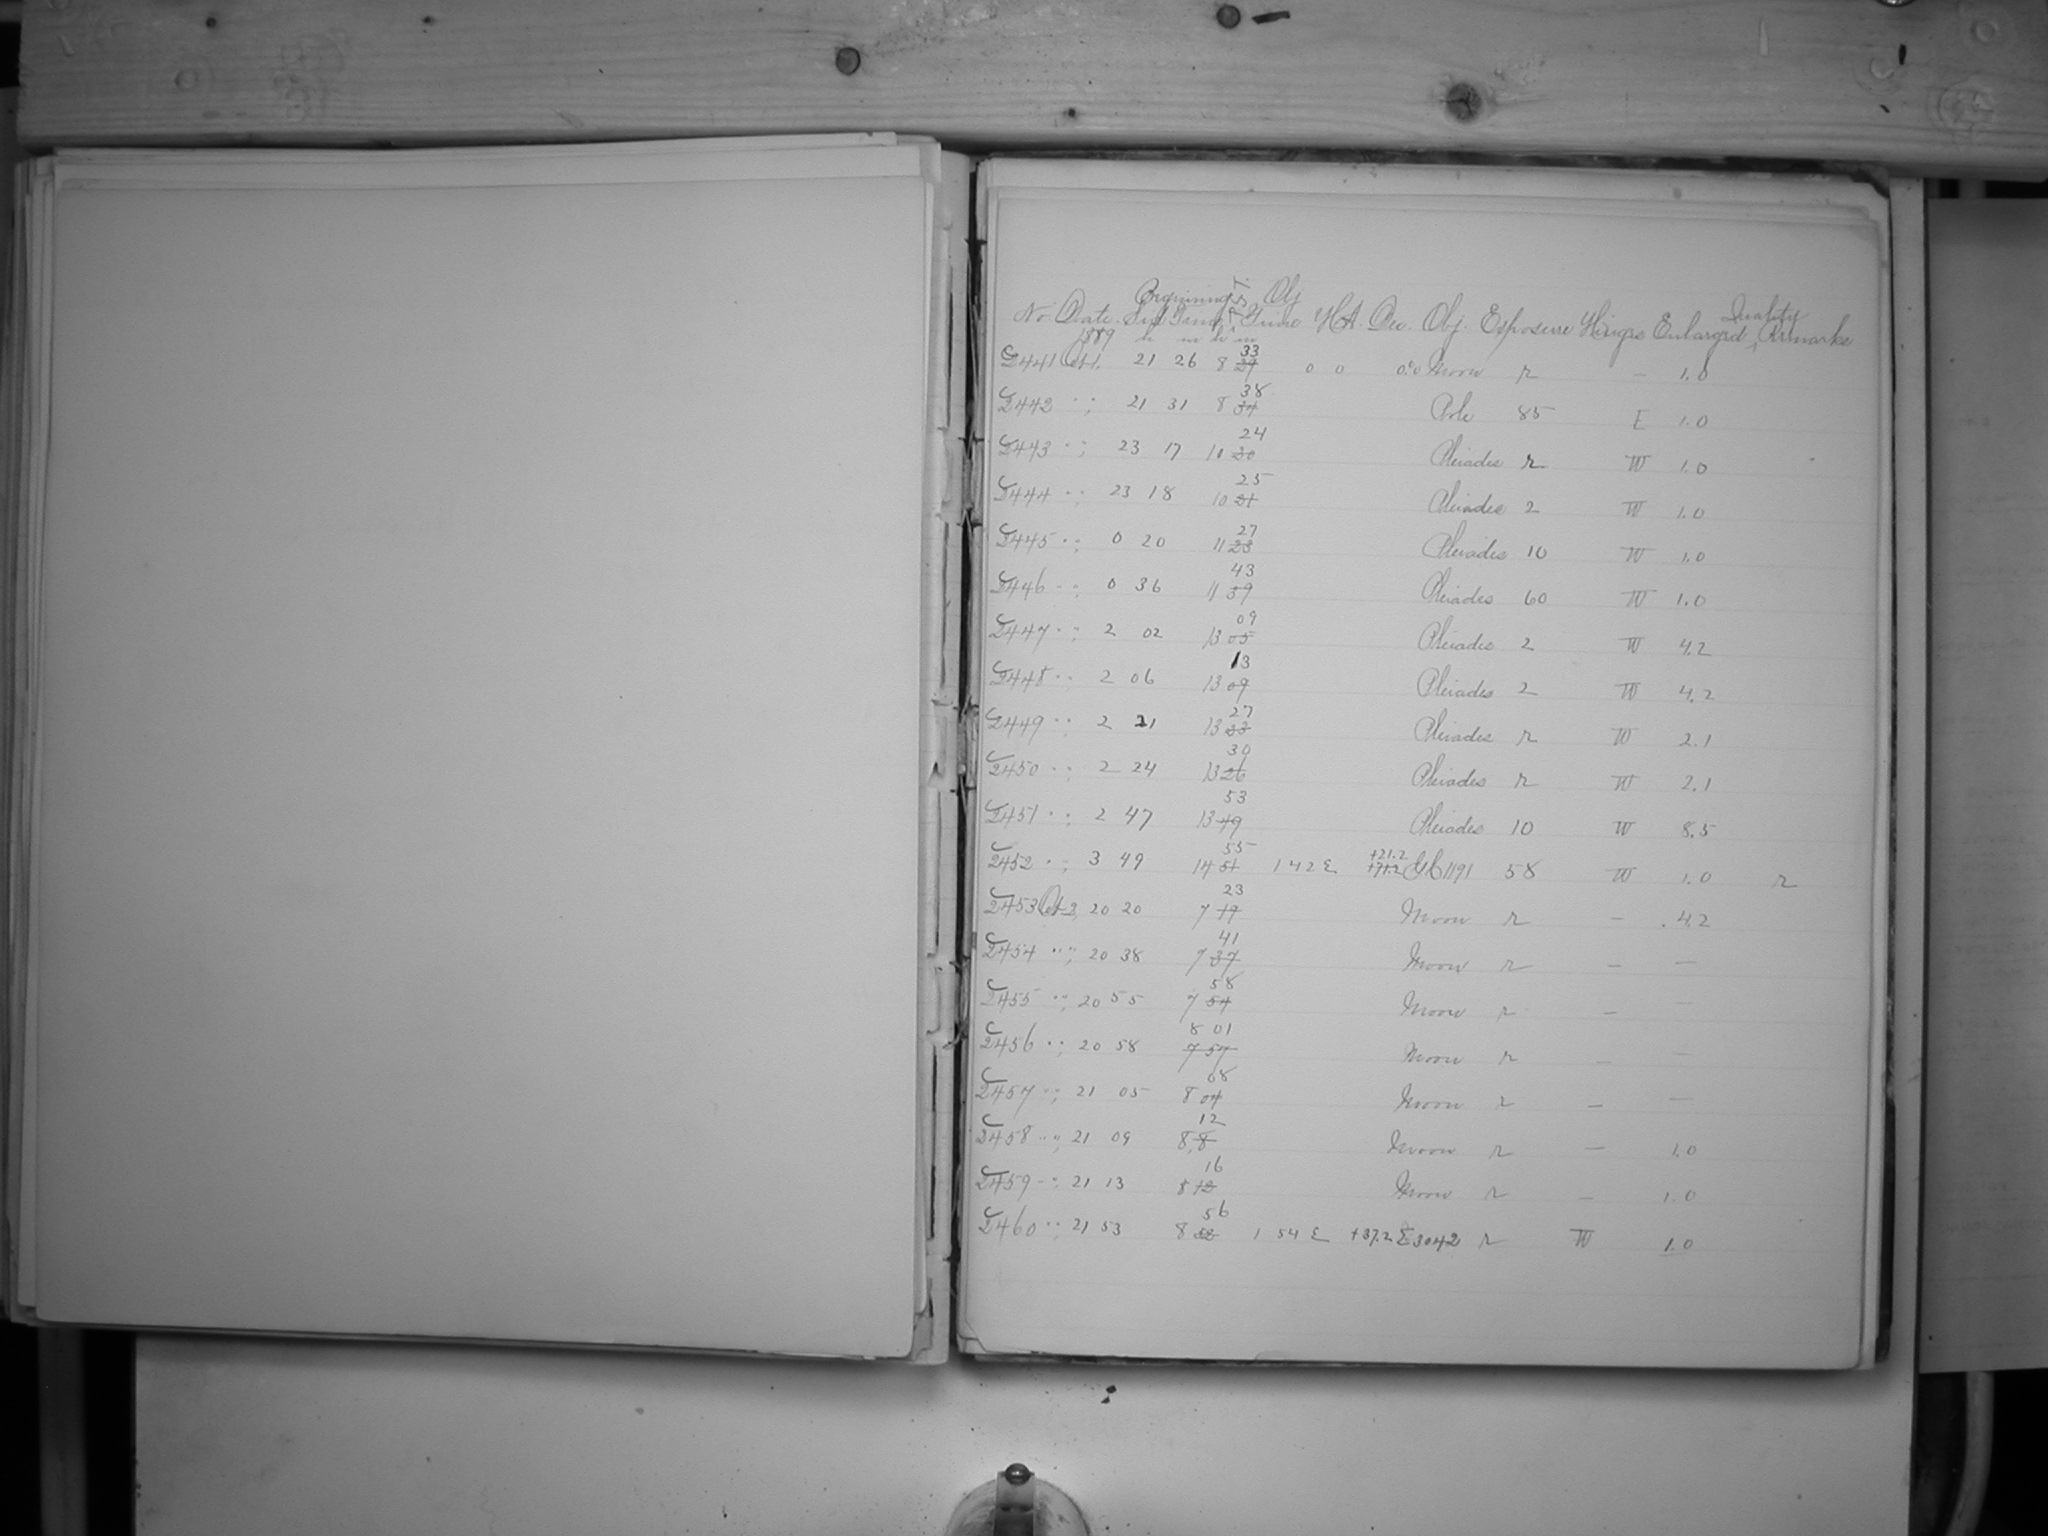 Beginning Obj
Quality
No. Date. Sid Time Time H.A. Dec. Obj. Exposure Hinges Enlarged Remarks
1889 h m h m
33
2441 Oct 1. 21 26 8 29 0 0 0.0 Moon r – 1.0
38
2442 " ; 21 31 8 34 Pole 85 E 1.0
24
2443 " ; 23 17 10 20 Pleiades r W 1.0
25
2444 " ; 23 18 10 21 Pleiades 2 W 1.0
27
2445 " ; 0 20 11 23 Pleiades 10 W 1.0
43
2446 " ; 0 36 11 39 Pleiades 60 W 1.0
09
2447 " ; 2 02 13 05 Pleiades 2 W 4.2
13
2448 " ; 2 06 13 09 Pleiades 2 W 4.2
27
2449 " ; 2 21 13 23 Pleiades r W 2.1
30
2450 " ; 2 24 13 26 Pleiades r W 2.1
53
2451 " ; 2 47 13 49 Pleiades 10 W 8.5
55 +21.2
2452 " ; 3 49 14 51 1 42 E +71.2 G.C. 1191 58 W 1.0 r
23
2453 Oct 2, 20 20 7 19 Moon r – 4.2
41
2454 " " ; 20 38 7 37 Moon r – –
58
2455 " ; 20 55 7 54 Moon r – –
8 01
2456 " ; 20 58 7 57 Moon r – –
08
2457 " ; 21 05 8 04 Moon r – –
12
2458 " ; 21 09 8 8 Moon r – 1.0
16
2459 " ; 21 13 8 12 Moon r – 1.0
56
2460 " ; 21 53 8 52 1 54 E +37.2 Σ3042 r W 1.0